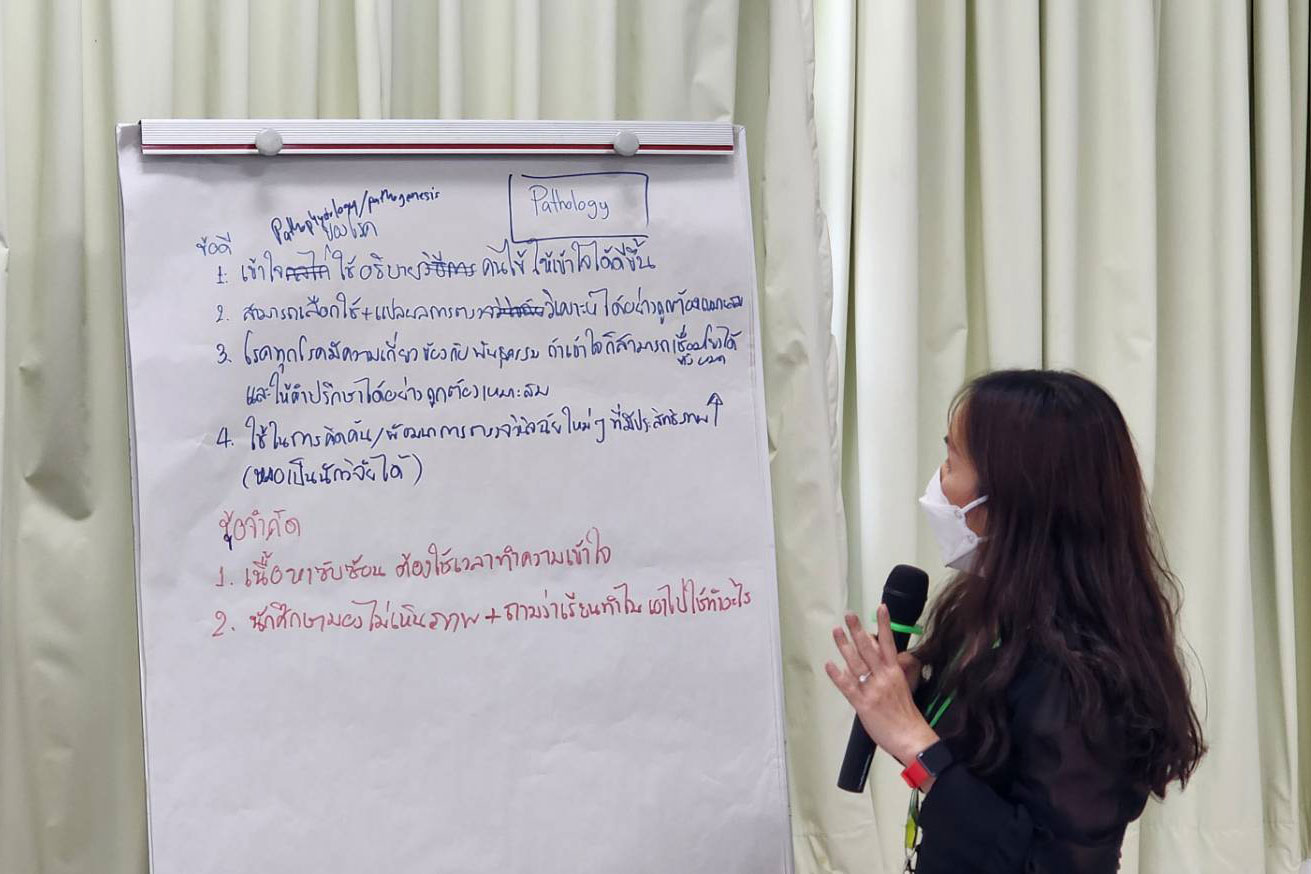 Pathology
Pathophysiology/pathogenesis
ของโรค
ข้อดี
1. เข้าใจกลไก ใช้อธิบายวิธีการ คนไข้ ให้เข้าใจได้ดีขึ้น
2. สามารถเลือกใช้+แปลผลการตรวจวินิจฉัยวิเคราะห์ ได้อย่างถูกต้องเหมาะสม
3. โรคทุกโรคมีความเกี่ยวข้องกับพันธุกรรม ถ้าเข้าใจก็สามารถเชื่อมโยงได้
ทั้งหมด
และให้คำปรึกษาได้อย่างถูกต้องเหมาะสม
4. ใช้ในการคิดค้น/พัฒนาการตรวจวินิจฉัยใหม่ๆ ที่มีประสิทธิภาพ↑
(เป็นนักวิจัยได้)
ข้อจำกัด
1. เนื้อหาซับซ้อน ต้องใช้เวลาทำความเข้าใจ
2. นักศึกษามองไม่เห็นภาพ + ถามว่าเรียนทำไม เอาไปใช้ทำอะไร